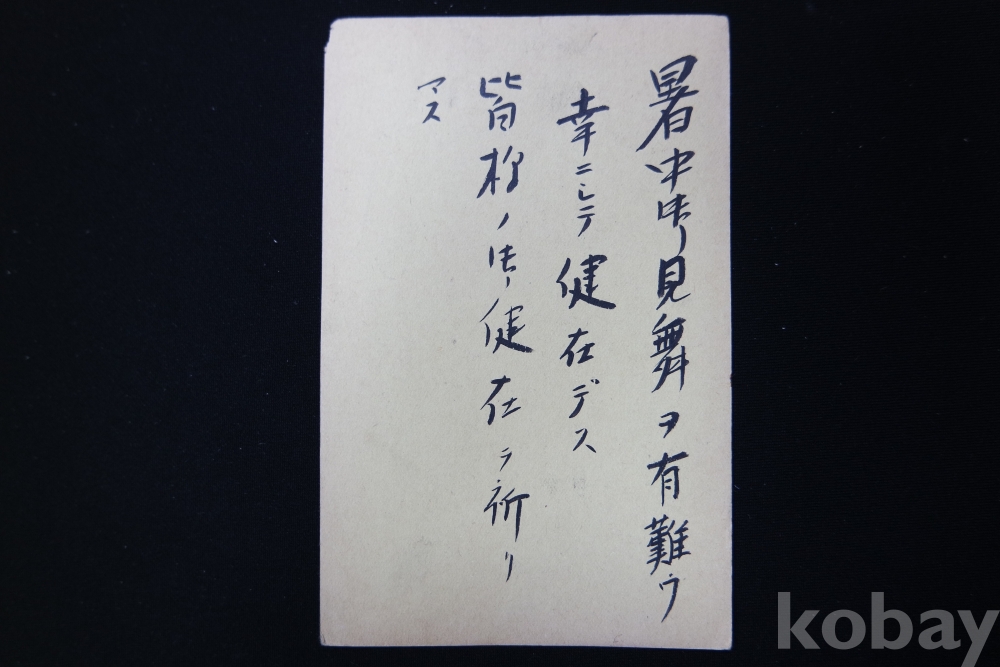 暑中御見舞ヲ有難ウ
幸ニシテ健在デス
皆様ノ御健在ヲ祈リ
マス
kobay